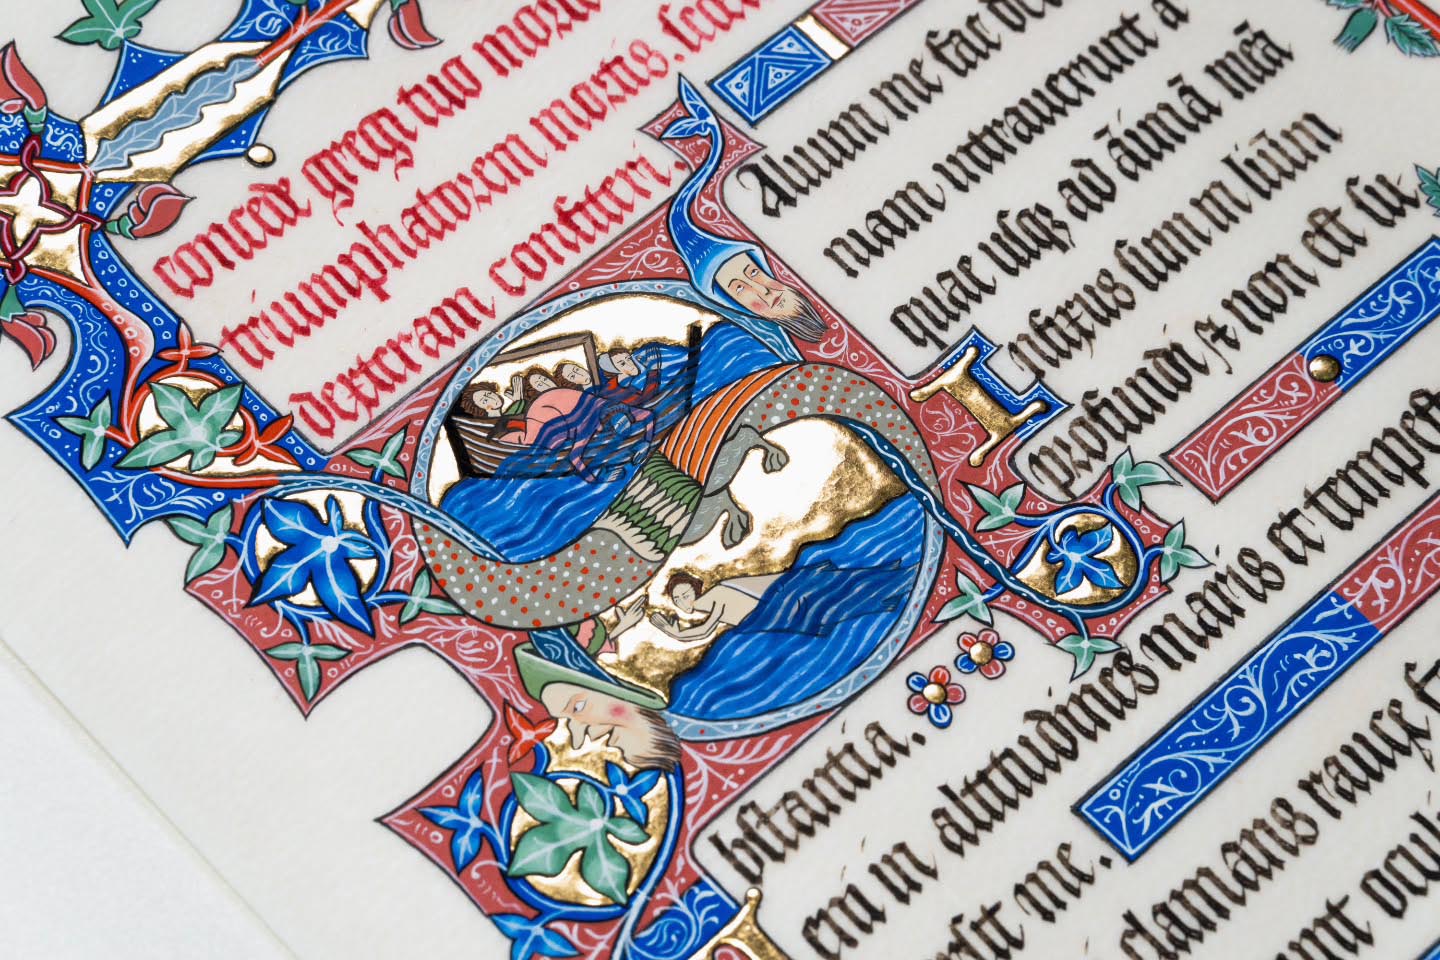 concede gregi tuo
triumphatorem mortis.
dexteram confiteri.
Aluum me fac
niam intrauerunt a
quae usqꝫ ad āīmā meā
Infixus sum in
profundi et non est su-
bstantia.
eni in altitudines maris et tempest
rsit me.
clamans rauce
unt ocul